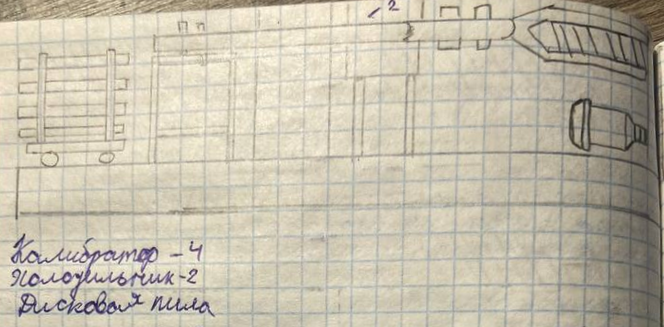 2
Калибратор - 4
Холодильник - 2
Дисковая пила